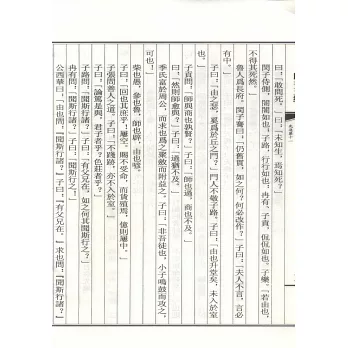 曰：「敢問死。」曰：「未知生，焉知死？」
閔子侍側，誾誾如也；子路，行行如也；冉有、子貢，侃侃如也。子樂。「若由也，
不得其死然。」
魯人為長府。閔子騫曰：「仍舊貫，如之何？何必改作？」子曰：「夫人不言，言必
有中。」
子曰：「由之瑟，奚為於丘之門？」門人不敬子路。子曰：「由也升堂矣，未入於室
也。」
子貢問：「師與商也孰賢？」子曰：「師也過，商也不及。」
曰：「然則師愈與？」子曰：「過猶不及。」
季氏富於周公，而求也為之聚斂而附益之。子曰：「非吾徒也，小子鳴鼓而攻之，
可也！」
柴也愚，參也魯，師也辟，由也喭。
子曰：「回也其庶乎！屢空。賜不受命，而貨殖焉，億則屢中。」
子張問善人之道。子曰：「不踐跡，亦不入於室。」
子曰：「論篤是與，君子者乎？色莊者乎？」
子路問：「聞斯行諸？」子曰：「有父兄在，如之何其聞斯行之？」
冉有問：「聞斯行諸？」子曰：「聞斯行之！」
公西華曰：「由也問：『聞斯行諸？』子曰：『有父兄在。』求也問：『聞斯行諸？』